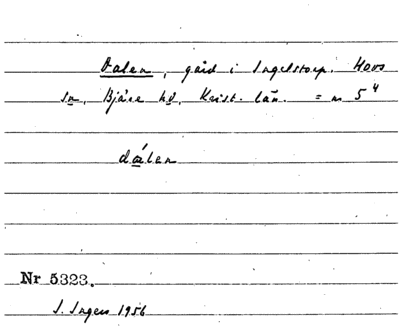 Dalen, gård i Ingelstorp. Hovs
sn, Bjäre hd, Krist. län. = m 5⁴
dálen
Nr 5323.
I. Ingers 1956